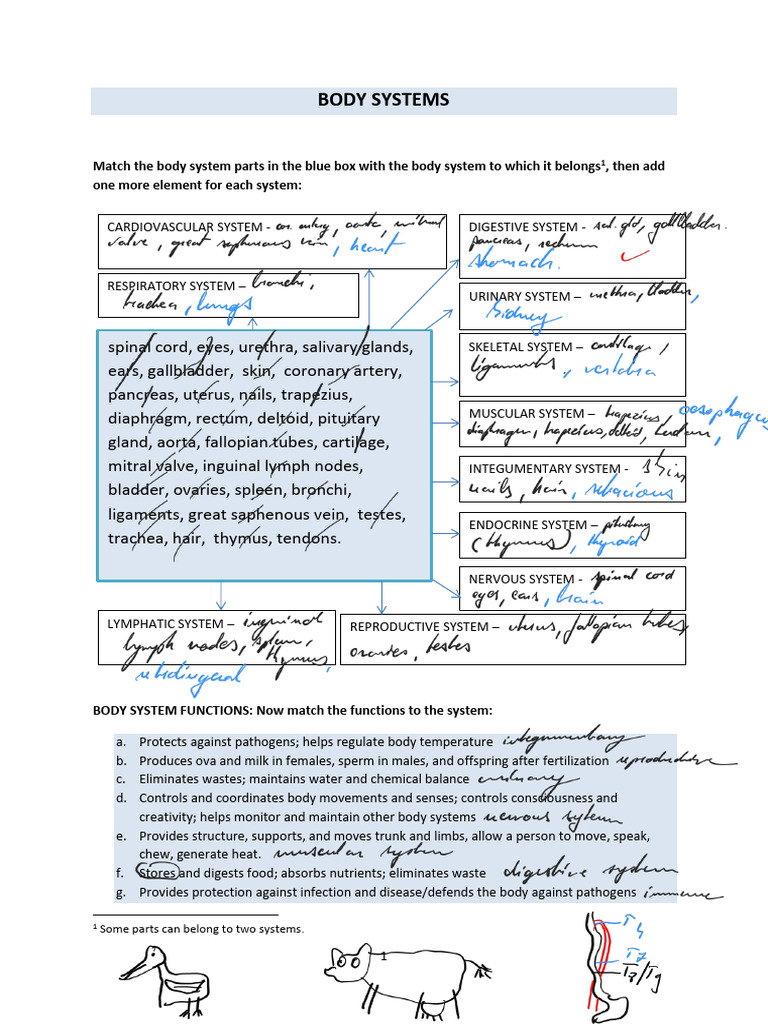 BODY SYSTEMS
Match the body system parts in the blue box with the body system to which it belongs¹, then add
one more element for each system:
CARDIOVASCULAR SYSTEM - cor. artery, aorta, mitral
valve, great saphenous vein, heart
DIGESTIVE SYSTEM - sal. gld, gallbladder.
pancreas, rectum
stomach.
RESPIRATORY SYSTEM – bronchi,
trachea, lungs
URINARY SYSTEM – urethra, bladder,
kidney
spinal cord, eyes, urethra, salivary glands,
ears, gallbladder, skin, coronary artery,
pancreas, uterus, nails, trapezius,
diaphragm, rectum, deltoid, pituitary
gland, aorta, fallopian tubes, cartilage,
mitral valve, inguinal lymph nodes,
bladder, ovaries, spleen, bronchi,
ligaments, great saphenous vein, testes,
trachea, hair, thymus, tendons.
SKELETAL SYSTEM – cartilage,
ligaments, vertebra
MUSCULAR SYSTEM – trapezius, oesophagus
diaphragm, trapezius, deltoid, tendon,
INTEGUMENTARY SYSTEM - skin
nails, hair, sebacious
ENDOCRINE SYSTEM – pituitary
(thymus), thyroid
NERVOUS SYSTEM - spinal cord
eyes, ears, brain
LYMPHATIC SYSTEM – inguinal
lymph nodes, spleen,
thymus,
REPRODUCTIVE SYSTEM – uterus, fallopian tubes,
ovaries, testes
BODY SYSTEM FUNCTIONS: Now match the functions to the system:
a. Protects against pathogens; helps regulate body temperature integumentary
b. Produces ova and milk in females, sperm in males, and offspring after fertilization reproductive
c. Eliminates wastes; maintains water and chemical balance urinary
d. Controls and coordinates body movements and senses; controls consciousness and
creativity; helps monitor and maintain other body systems nervous system
e. Provides structure, supports, and moves trunk and limbs, allow a person to move, speak,
chew, generate heat. muscular system
f. Stores and digests food; absorbs nutrients; eliminates waste digestive system
g. Provides protection against infection and disease/defends the body against pathogens immune
¹ Some parts can belong to two systems.
T4
T7
T8/T9
1